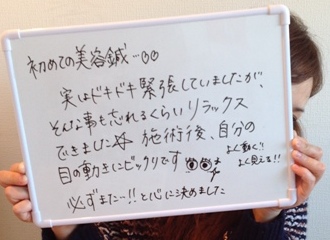 初めての美容鍼…
実はドキドキ緊張していましたが、
そんな事も忘れるくらいリラックス
できました 施術後、自分の
目の動きにビックリです よく動く!!
よく見える!!
必ずまた…!!と心に決めました